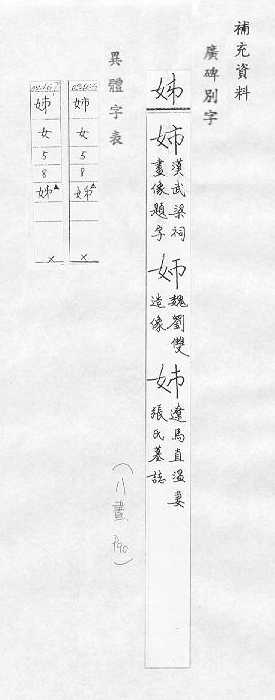 補充資料
廣碑別字
姊
姉 漢武梁祠畫像題字
姉 魏劉雙造像
姊 遼馬直溫妻張氏墓誌
異體字表
姊 女 5 8
姉 女 5 8
(八畫 P90)